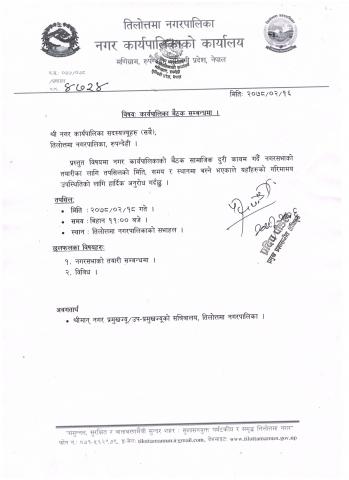 तिलोत्तमा नगरपालिका
नगर कार्यपालिकाको कार्यालय
मणिग्राम, रुपन्देही प्रदेश, नेपाल
प.सं. ०७७/०७८
च.नं. ४७२४
मिति: २०७८/०२/१६
विषय: कार्यपालिका बैठक सम्बन्धमा ।
श्री नगर कार्यपालिका सदस्यज्यूहरु (सबै),
तिलोत्तमा नगरपालिका, रुपन्देही ।
प्रस्तुत विषयमा नगर कार्यपालिकाको बैठक सामाजिक दुरी कायम गर्दै नगरसभाको
तयारीका लागि तपसिलको मिति, समय र स्थानमा बस्ने भएकाले यहाँहरुको गरिमामय
उपस्थितिको लागि हार्दिक अनुरोध गर्दछु ।
तपसिल:
• मिति : २०७८/०२/१८ गते ।
• समय : बिहान ११:०० बजे ।
• स्थान : तिलोत्तमा नगरपालिकाको सभाहल ।
छलफलका विषयहरु:
१. नगरसभाको तयारी सम्बन्धमा ।
२. विविध ।
अवगतार्थ
• श्रीमान् नगर प्रमुखज्यू/उप-प्रमुखज्यूको सचिवालय, तिलोत्तमा नगरपालिका ।
फोन नं.: ०७१-५६२९७६, इ-मेल: tilottamamun@gmail.com, वेबसाइट: www.tilottamamun.gov.np